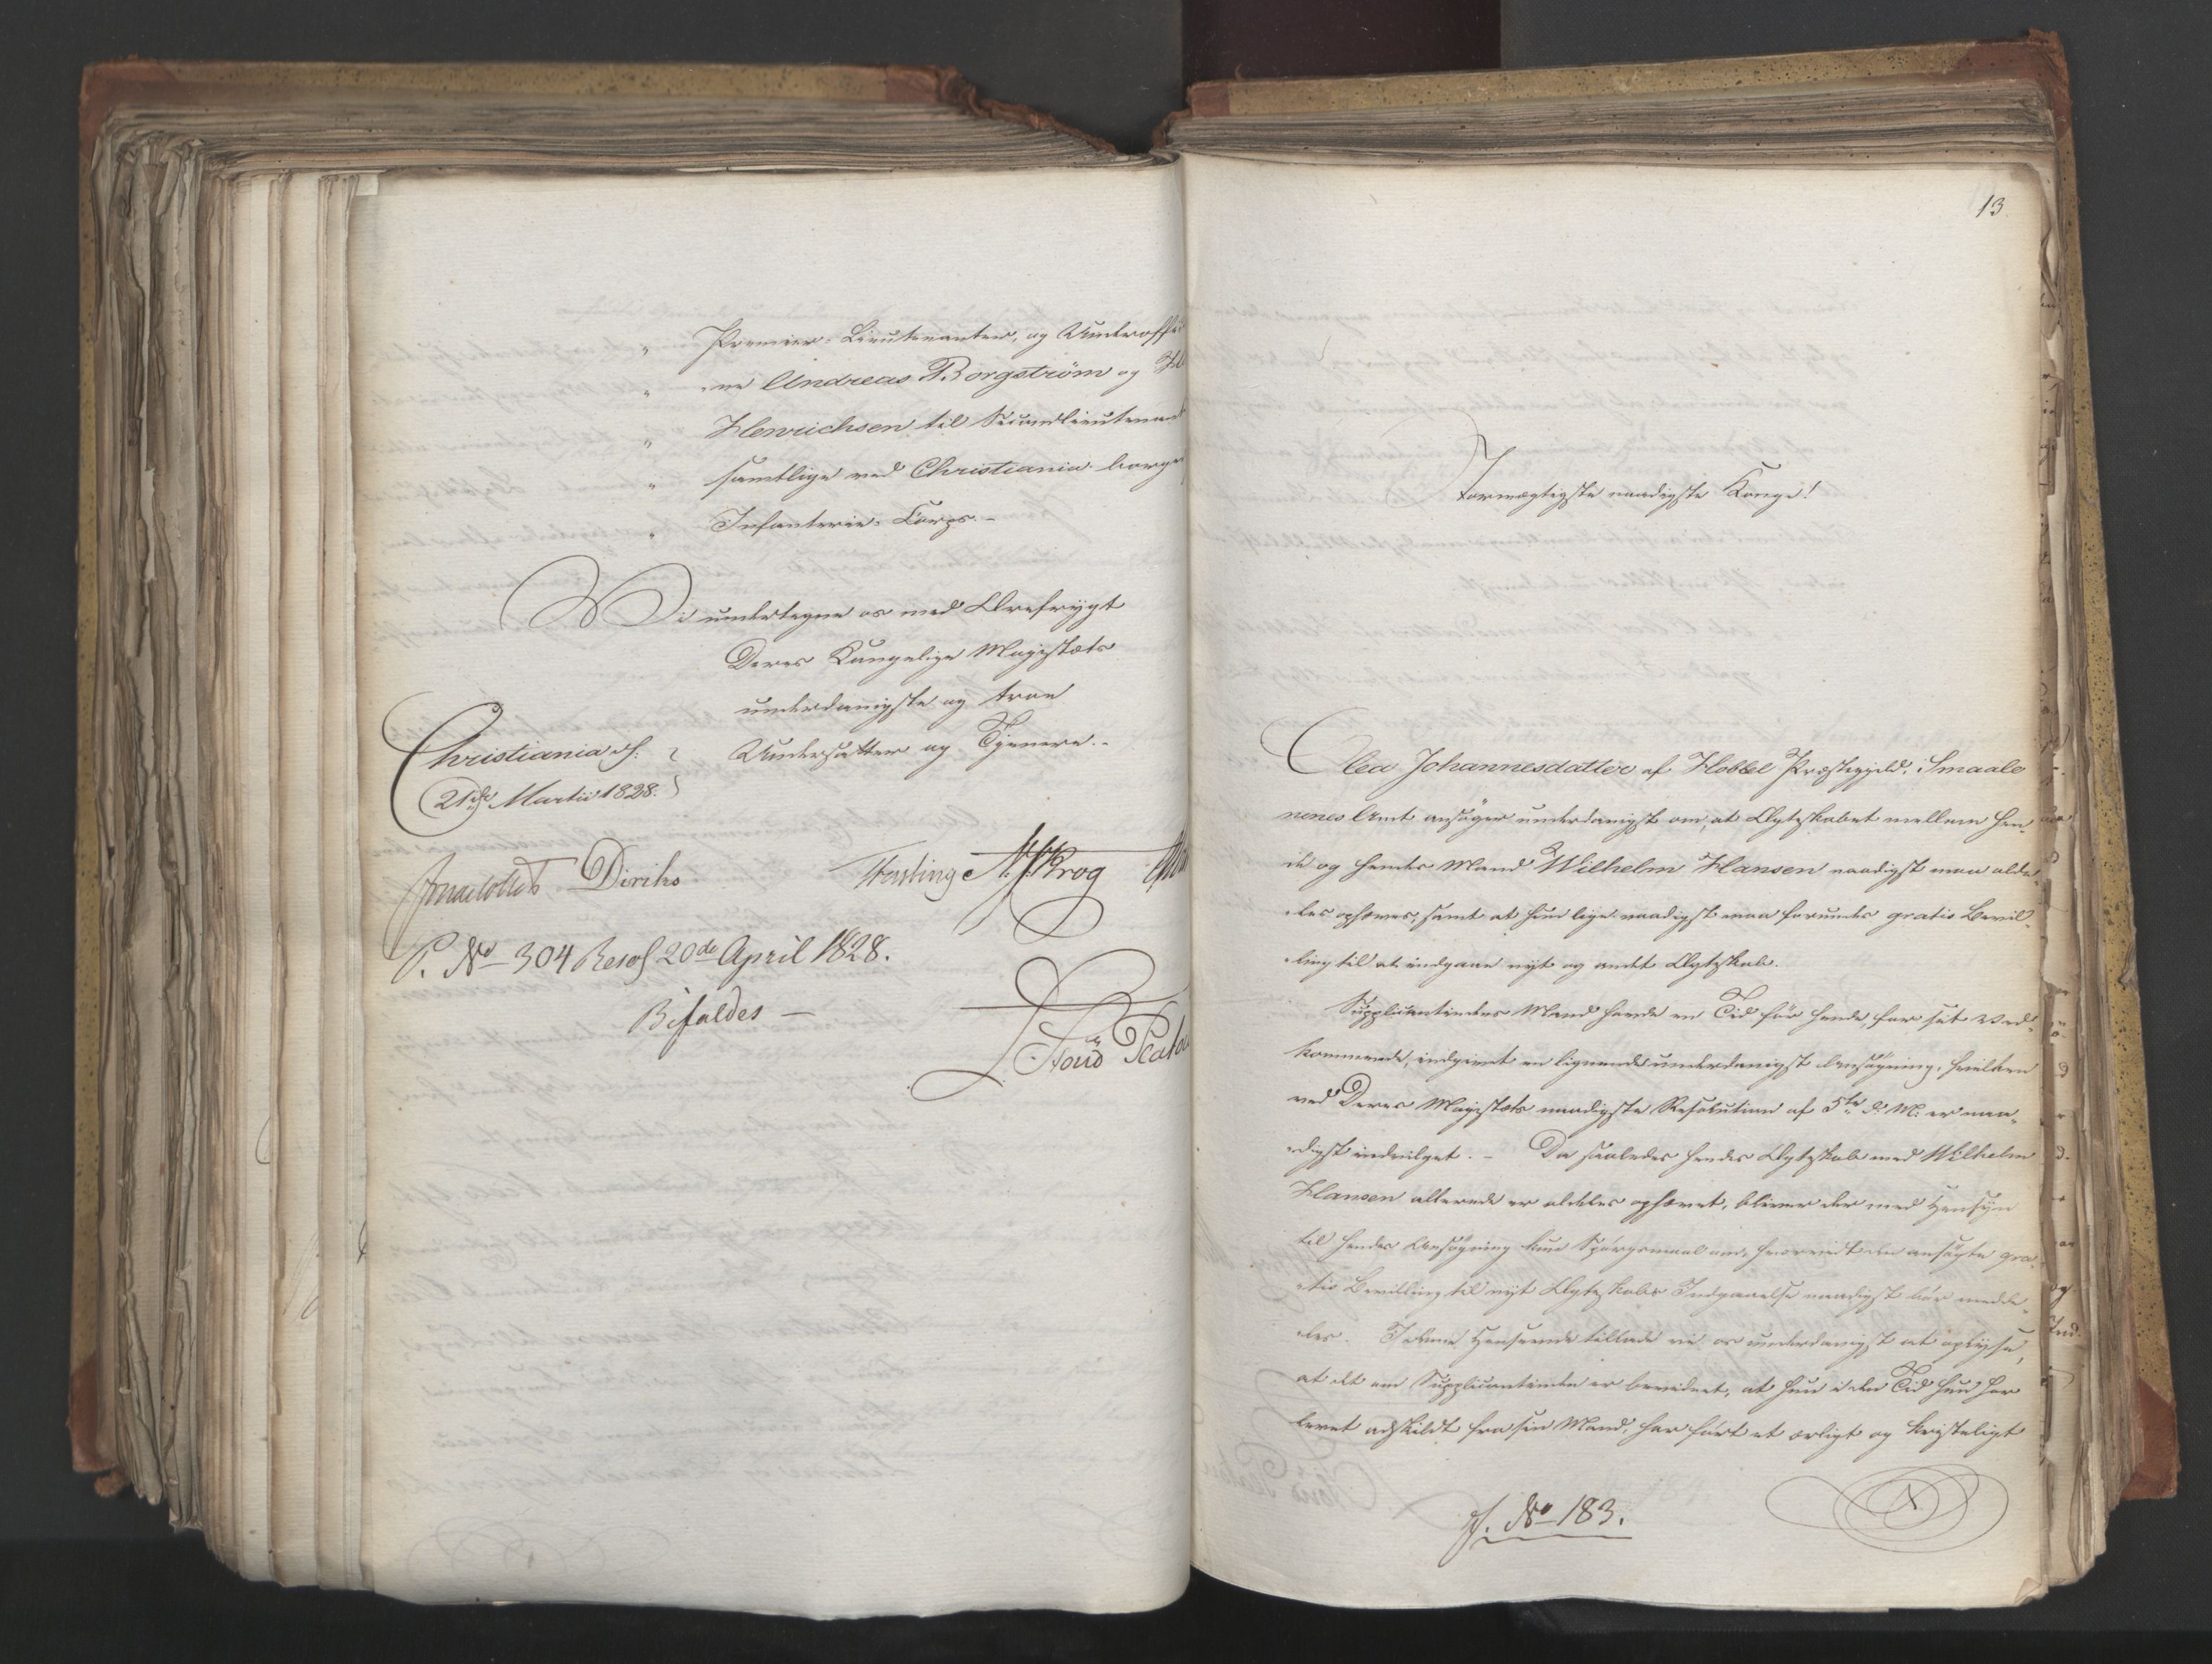 " Premier-Lieutenanter, og Underoffi
" -ne Andreas Borgström og
" Henrichsen til Secondlieutenant
" samtlige ved Christiania borger
" Infanterie-Corps.-
Vi undertegne os med Ærefrygt
Deres Kongelige Majestæts
underdanigste og troe
Undersatter og Tjenere.-
Christiania d.
21de Martii 1828.
Diriks Hesting N. J. Krog
P. No 304 Resol 20de April 1828.
Bifaldes —
13
Stormægtigste naadigste Konge!
Olea Johannesdatter af Hobbel Præstegjeld, Smaale
nenes Amt ansøger underdanigst om, at Ægteskabet mellem hen-
de og hendes Mand Wilhelm Hansen naadigst maa alde-
-les ophæves, samt at hun lige naadigst maa forundes gratis Bevil-
-ling til at indgaae nyt og andet Ægteskab.
Supplicantindens Mand havde en Tid før hende, for sit Ved-
kommende, indgivet en lignende underdanigst Ansøgning, hvilken
ved Deres Majestæts naadigste Resolution af 5te d. M. er naa-
-digst indvilget. - Da saaledes hendes Ægteskab med Wilhelm
Hansen allerede er aldeles ophævet, bliver der med Hensyn
til hendes Ansøgning kun Spørgsmaal om, hvorvidt den ansøgte gra-
-tis Bevilling til nyt Ægteskabs Indgaaelse naadigst bør medde-
-les. I denne Henseende tillade vi os underdanigst at oplyse,
at det om Supplicantinden er bevidnet, at hun i den Tid hun har
levet adskildt fra sin Mand, har ført et ærligt og christeligt
J. No 183.